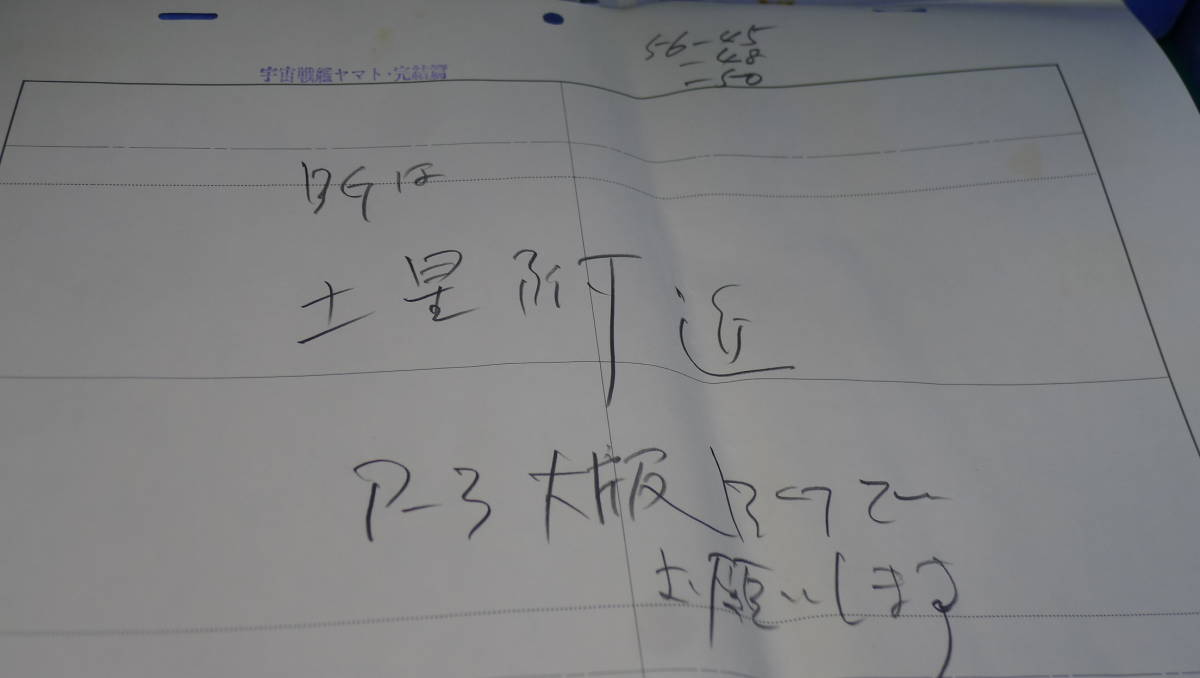 56-45
-48
-50
宇宙戦艦ヤマト・完結篇
BGは
土星附近
P-3 大版 BGで
お願いします